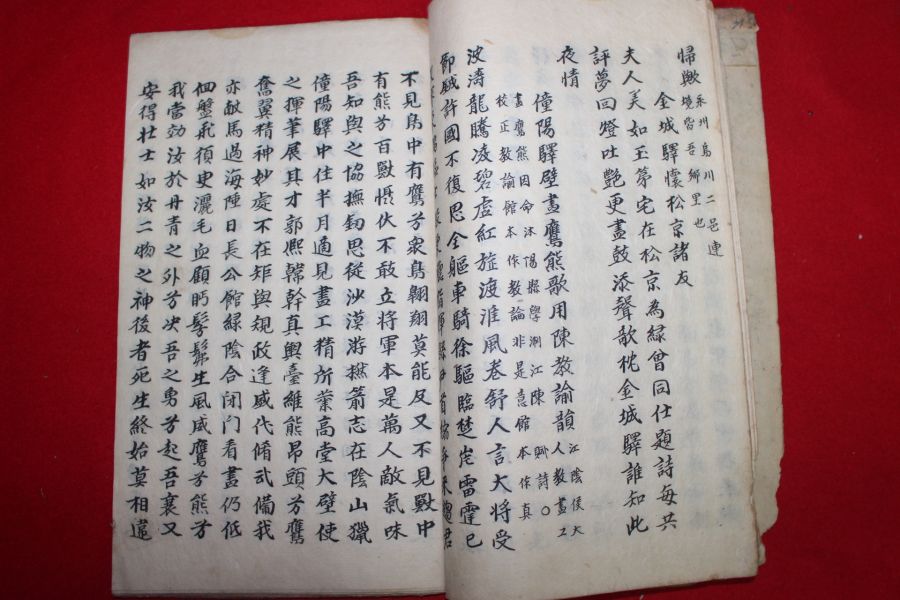 歸歟 永川烏川二邑連
境皆吾鄉里也
金城驛懷松京諸友
夫人美如玉第宅在松京為緑曾同仕題詩每共
評夢回燈吐艷更盡鼓添聲歌枕金城驛誰知此
夜情
僮陽驛壁畫鷹熊歌用陳教諭韻 江陰侯大人教畫工
畫鷹熊因命沭陽縣學浙江陳 賦詩〇
校正教諭館本作教諭非是熹館本作真
波濤龍騰凌碧虛紅旌渡淮風卷舒人言大將受
節鉞許國不復思全軀車騎徐驅臨楚岸雷霆已
不見鳥中有鷹兮衆鳥翺翔莫能及又不見獸中
有熊兮百獸慴伏不敢立將軍本是萬人敵氣味
吾知與之協撫劍思從沙漠游撚箭志在陰山獵
僮陽驛中住半月適見畫工精所業高堂大壁使
之揮筆展其才郭熙韓幹真輿臺維熊昂頭兮鷹
奮翼精神妙處不在矩與規政逢盛代脩武備我
亦馘馬過海陲日長公館緑陰合閉門看畫仍低
佪盤飛須臾灑毛血顧眄髣髴生風威鷹兮熊兮
我當効汝於丹青之外兮决吾之勇兮起吾衰又
安得壮士如汝二物之神俊者死生終始莫相違